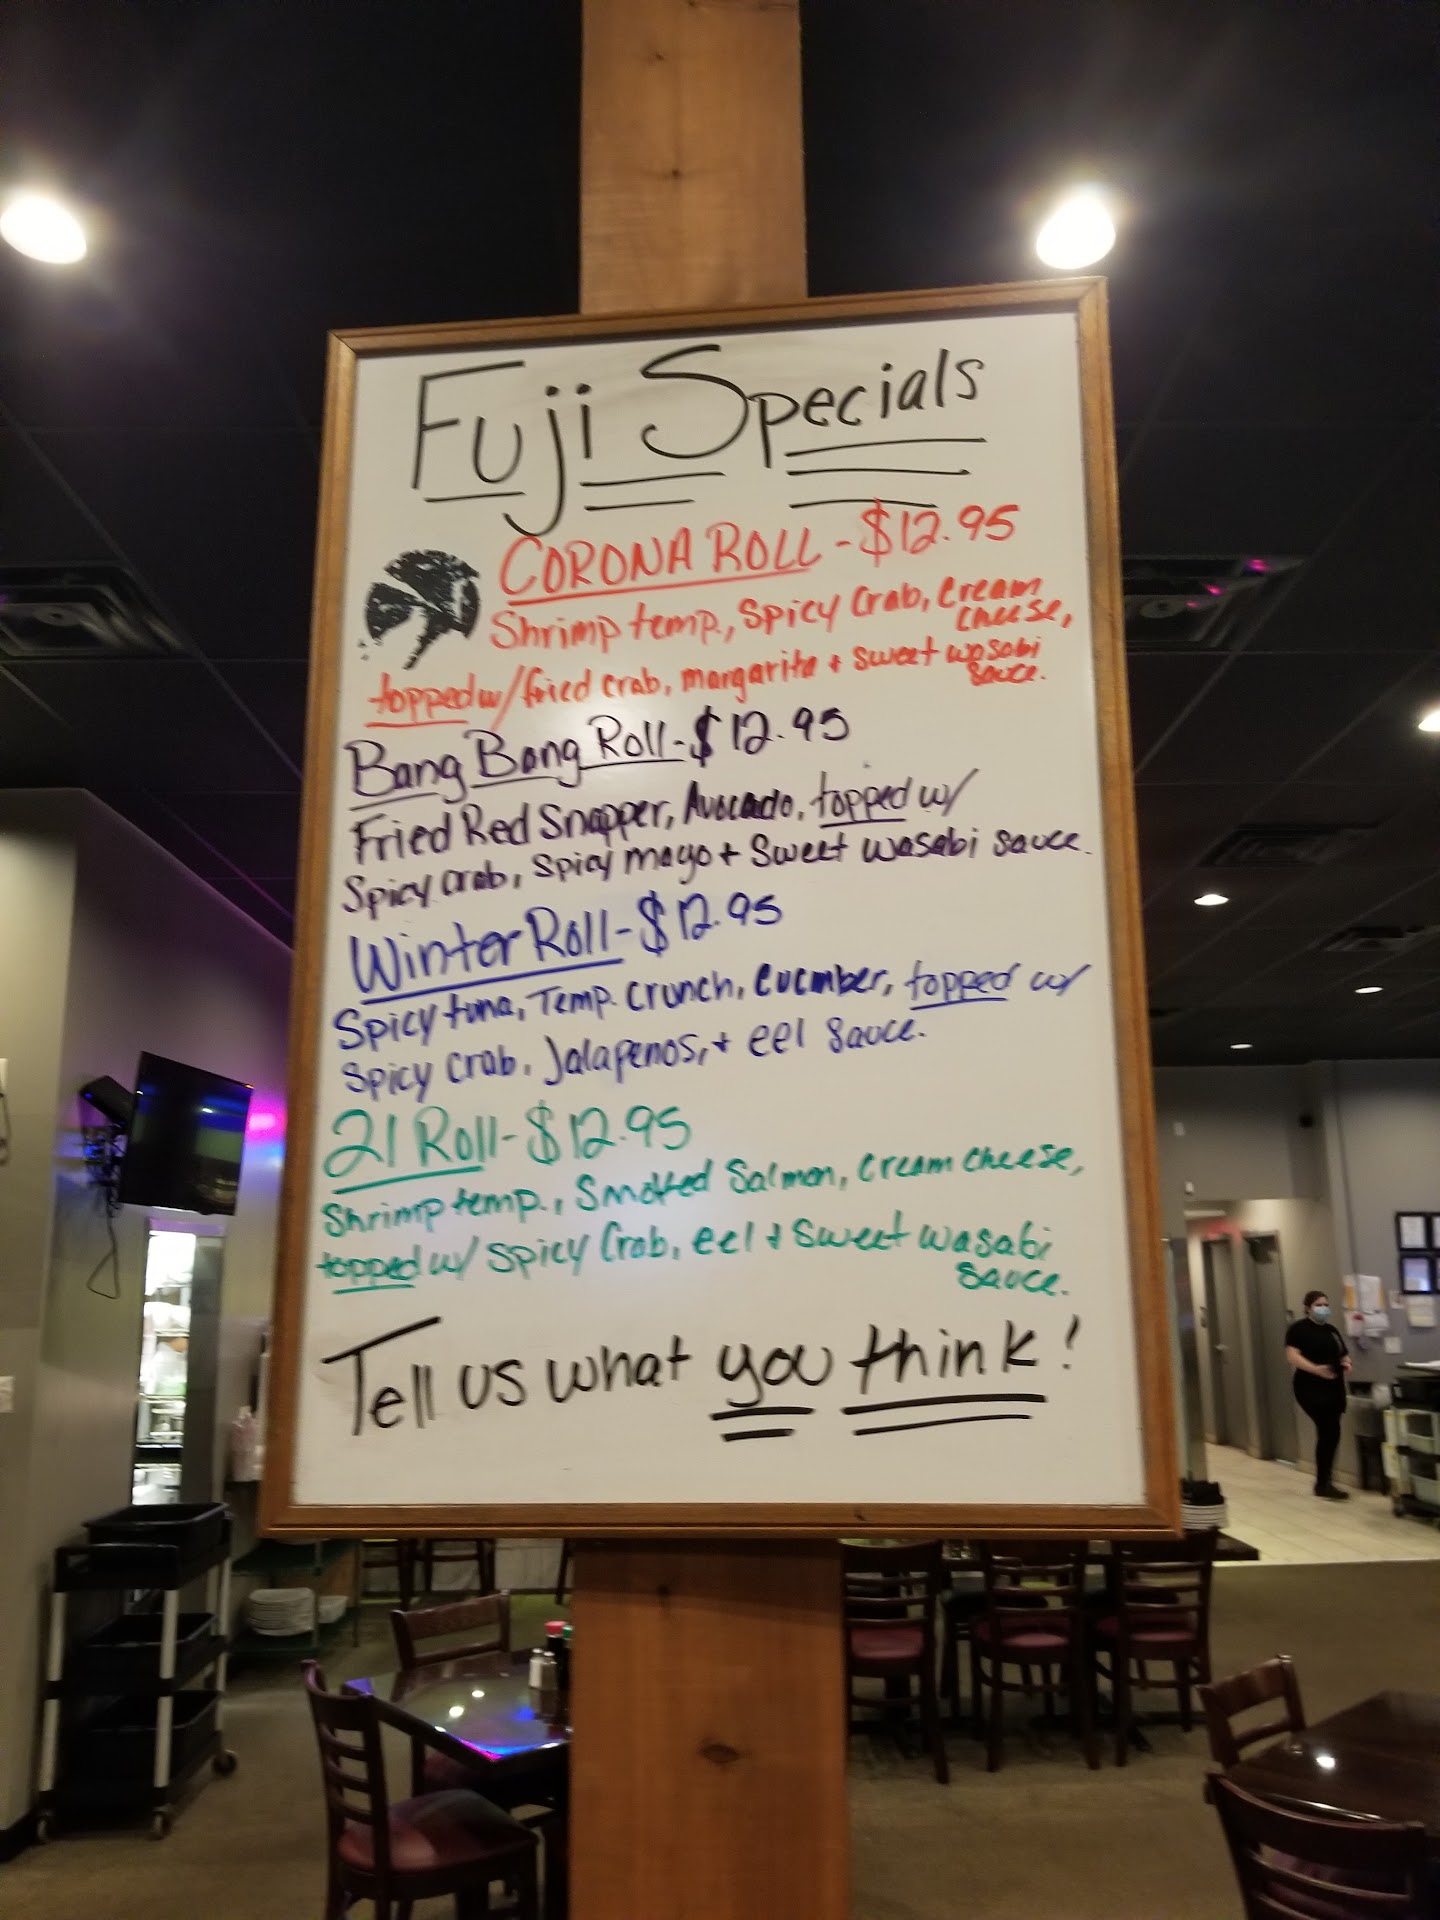 Fuji Specials
CORONA ROLL - $12.95
Shrimp temp., Spicy Crab, Cream
cheese,
topped w/ fried crab, margarita + sweet wasabi
sauce.
Bang Bang Roll - $12.95
Fried Red Snapper, Avocado, topped w/
Spicy crab, Spicy mayo + Sweet wasabi sauce.
Winter Roll - $12.95
Spicy tuna, Temp. crunch, cucmber, topped w/
Spicy crab, Jalapenos, + eel sauce.
21 Roll - $12.95
Shrimp temp., Smoked Salmon, cream cheese,
topped w/ Spicy Crab, eel + Sweet wasabi
sauce.
Tell us what you think!